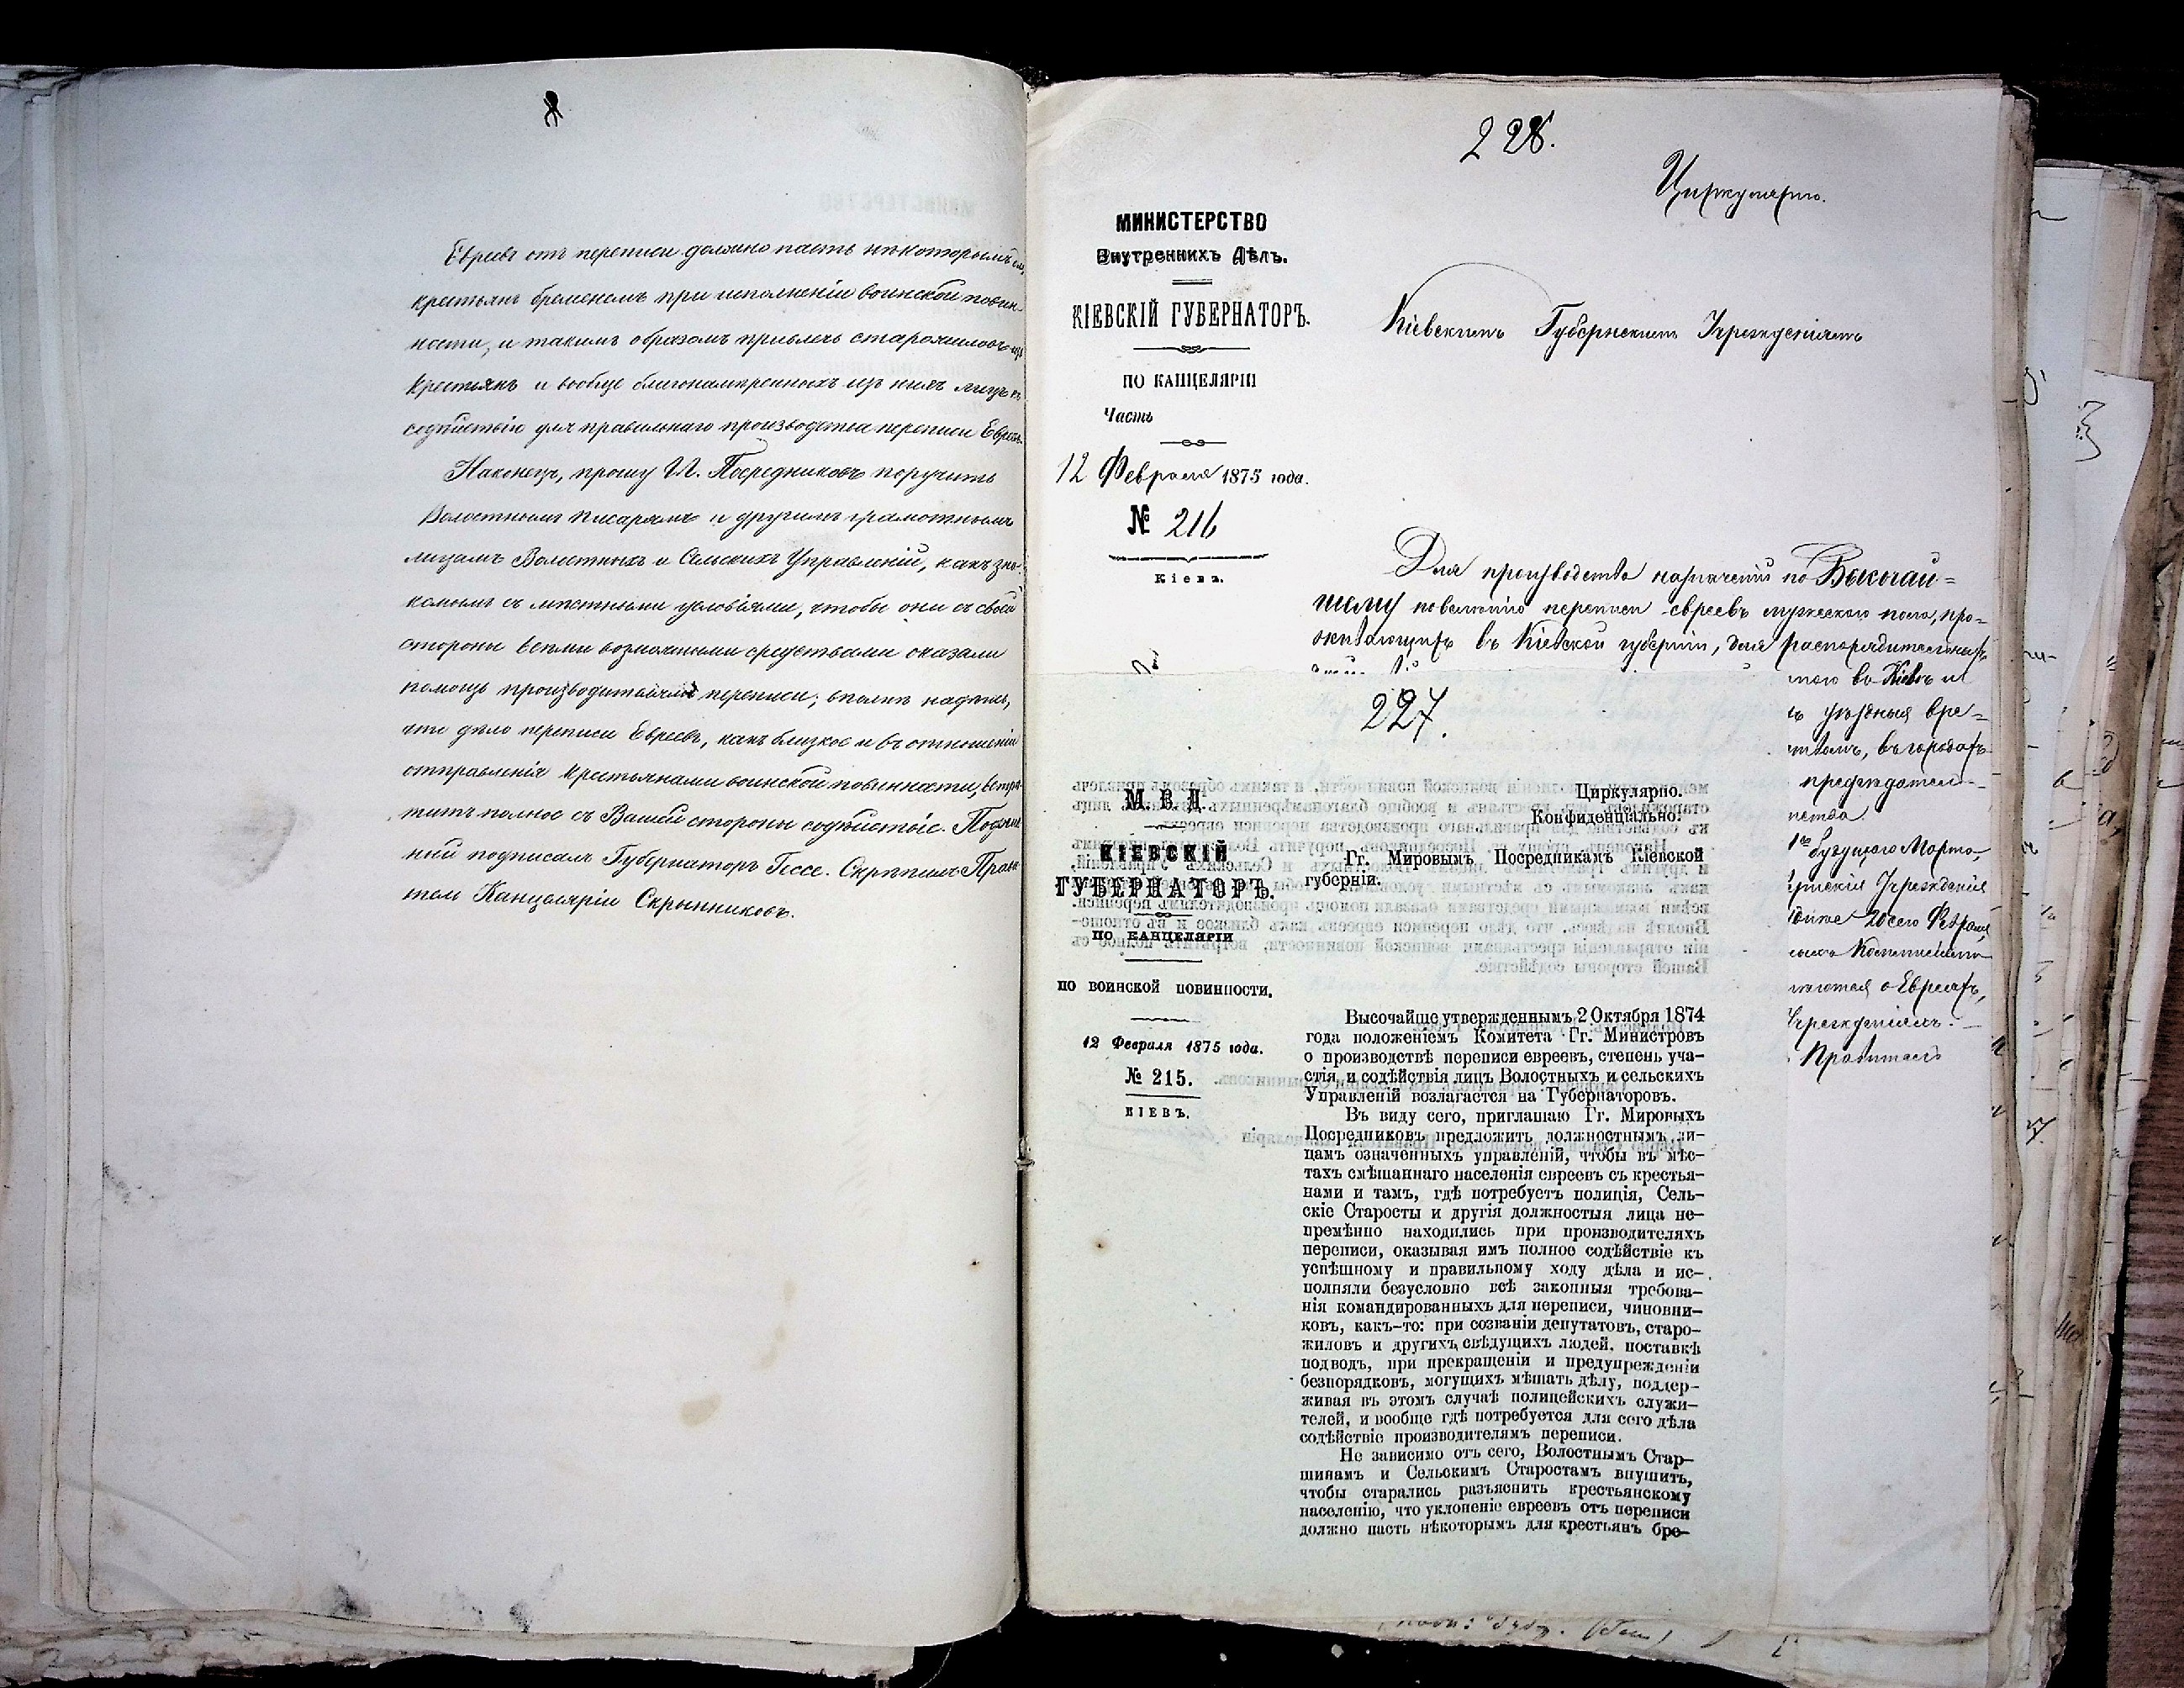 Евреевъ отъ переписи должно пасть нѣкоторымъ для
крестьянъ бременемъ при исполненіи воинской повин-
ности, и такимъ образомъ привлечь старожиловъ изъ
крестьянъ и вообще благонамѣренныхъ изъ нихъ лицъ къ
содѣйствію для правильнаго производства переписи Евреевъ.
Наконецъ, прошу Гг. Посредниковъ поручить
Волостнымъ писарямъ и другимъ грамотнымъ
лицамъ Волостныхъ и Сельскихъ Управленій, какъ зна-
комымъ съ мѣстными условіями, чтобы они съ своей
стороны всѣми возможными средствами оказали
помощь производителямъ переписи; вполнѣ надѣясь,
что дѣло переписи Евреевъ, какъ близкое и въ отношеніи
отправленія крестьянами воинской повинности, встрѣ-
титъ полное съ Вашей стороны содѣйствіе. Подлин-
ный подписалъ Губернаторъ Гессе. Скрѣпилъ Прави-
тель Канцеляріи Скрынниковъ.
228.
Циркулярно.
МИНИСТЕРСТВО
Внутреннихъ Дѣлъ.
КІЕВСКІЙ ГУБЕРНАТОРЪ.
ПО КАНЦЕЛЯРІИ
Часть
12 Февраля 1875 года.
№ 216
Кіевъ.
Кіевскимъ Губернскимъ Учрежденіямъ
Для производства назначенной по Высочай=
шему повелѣнію переписи евреевъ мужескаго пола, про=
живающихъ въ Кіевской губерніи, для распорядительныхъ
въ Кіевѣ и
уѣздныя вре=
въ городахъ
предсѣдатель-
будущаго Марта,
Учрежденія
20 сего Февраля
о Евреяхъ,
Учрежденіямъ.
Правитель
227.
М. В. Д.
КІЕВСКІЙ
ГУБЕРНАТОРЪ.
ПО КАНЦЕЛЯРІИ
ПО ВОИНСКОЙ ПОВИННОСТИ.
12 Февраля 1875 года.
№ 215.
КІЕВЪ.
Циркулярно.
Конфиденціально.
Гг. Мировымъ Посредникамъ Кіевской
губерніи.
Высочайше утвержденнымъ 2 Октября 1874
года положеніемъ Комитета Гг. Министровъ
о производствѣ переписи евреевъ, степень уча-
стія и содѣйствія лицъ Волостныхъ и сельскихъ
Управленій возлагается на Губернаторовъ.
Въ виду сего, приглашаю Гг. Мировыхъ
Посредниковъ предложить должностнымъ ли-
цамъ означенныхъ управленій, чтобы въ мѣс-
тахъ смѣшаннаго населенія евреевъ съ крестья-
нами и тамъ, гдѣ потребуетъ полиція, Сель-
скіе Старосты и другія должностыя лица не-
премѣнно находились при производителяхъ
переписи, оказывая имъ полное содѣйствіе къ
успѣшному и правильному ходу дѣла и ис-
полняли безусловно всѣ законныя требова-
нія командированныхъ для переписи, чиновни-
ковъ, какъ-то: при созваніи депутатовъ, старо-
жиловъ и другихъ свѣдущихъ людей, поставкѣ
подводъ, при прекращеніи и предупрежденіи
безпорядковъ, могущихъ мѣшать дѣлу, поддер-
живая въ этомъ случаѣ полицейскихъ служи-
телей, и вообще гдѣ потребуется для сего дѣла
содѣйствіе производителямъ переписи.
Не зависимо отъ сего, Волостнымъ Стар-
шинамъ и Сельскимъ Старостамъ внушить,
чтобы старались разъяснить крестьянскому
населенію, что уклоненіе евреевъ отъ переписи
должно пасть нѣкоторымъ для крестьянъ бре-